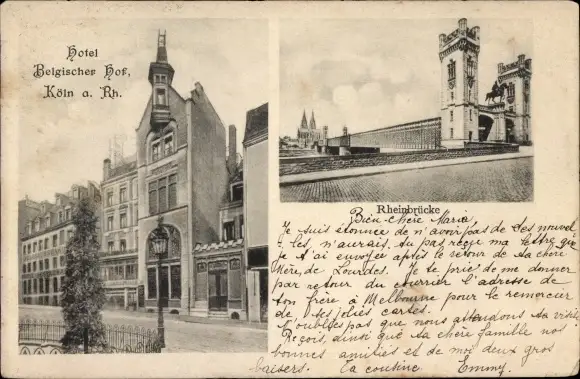 Hotel
Belgischer Hof,
Köln a. Rh.
Rheinbrücke
Bien chère Maria
Je suis étonnée de n'avoir pas de tes nouvel-
les n'aurais-tu pas reçu ma lettre que
je t'ai envoyée après le retour de ta chère
Mère, de Lourdes. Je te prie de me donner
par retour du courrier l'adresse de
ton frère à Melbourne pour le remercier
de ses jolies cartes.
N'oublies pas que nous attendons ta visite
Reçois, ainsi que ta chère famille nos
bonnes amitiés et de moi deux gros
baisers. Ta cousine Emmy.